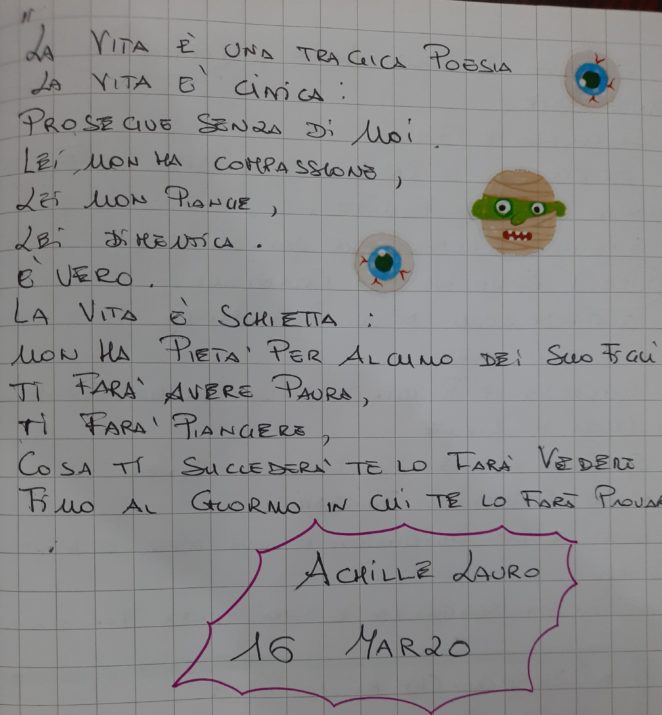 "
LA VITA È UNA TRAGICA POESIA
LA VITA E' CINICA:
PROSEGUE SENZA DI NOI.
LEI NON HA COMPASSIONE,
LEI NON PIANGE,
LEI DIMENTICA.
È VERO.
LA VITA È SCHIETTA:
NON HA PIETA' PER ALCUNO DEI SUOI FIGLI
TI FARA' AVERE PAURA,
TI FARA' PIANGERE,
COSA TI SUCCEDERA' TE LO FARÀ VEDERE
FINO AL GIORNO IN CUI TE LO FARÀ PROVAR
.
ACHILLE LAURO
16 MARZO